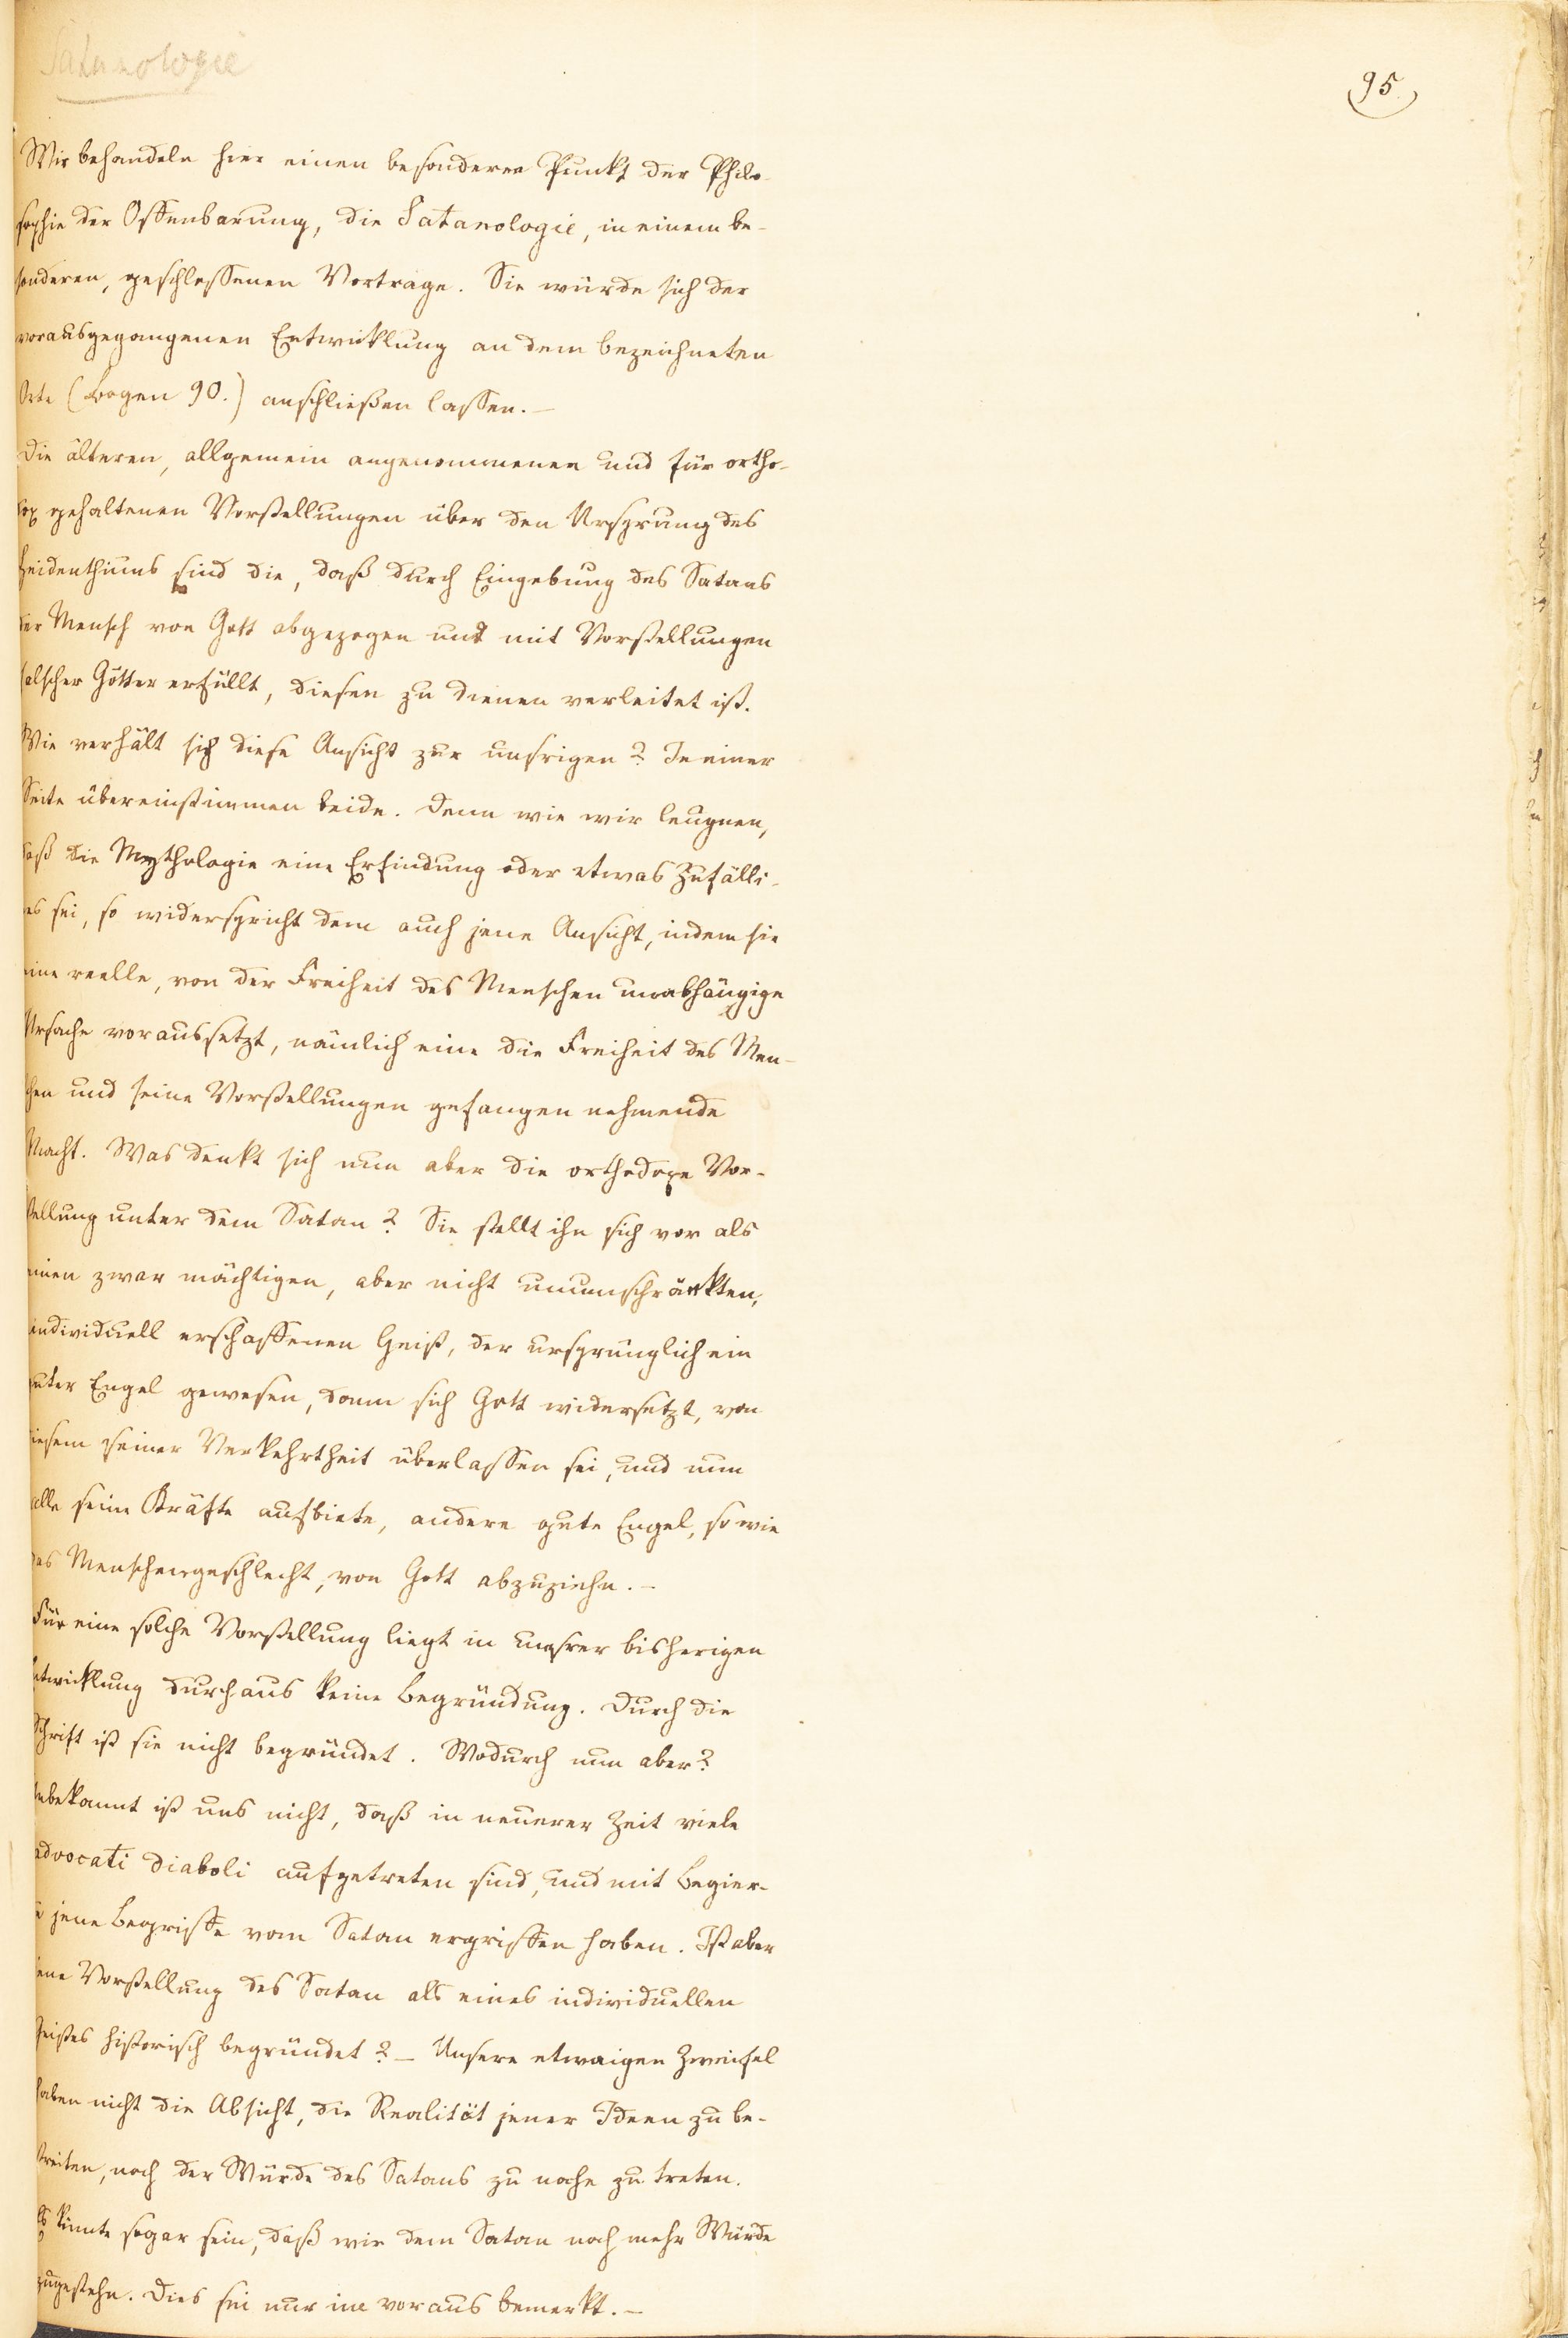 Satanologie
95
Wir behandeln hier einen besonderen Punkt der Philo-
sophie der Offenbarung, die Satanologie, in einem be-
sonderen, geschlossenen Vortrage. Sie würde sich der
vorausgegangenen Entwicklung an dem bezeichneten
Orte (Bogen 90.) anschließen lassen. –
Die älteren, allgemein angenommenen und für ortho-
dox gehaltenen Vorstellungen über den Ursprung des
Heidenthums sind die, daß durch Eingebung des Satans
der Mensch von Gott abgezogen und mit Vorstellungen
falscher Götter erfüllt, diesen zu dienen verleitet ist.
Wie verhält sich diese Ansicht zur unsrigen? In einer
Seite übereinstimmen beide. Denn wie wir leugnen,
daß die Mythologie eine Erfindung oder etwas Zufälli-
ges sei, so widerspricht dem auch jene Ansicht, indem sie
eine reelle, von der Freiheit des Menschen unabhängige
Ursache voraussetzt, nämlich eine die Freiheit des Men-
schen und seine Vorstellungen gefangen nehmende
Macht. Was denkt sich nun aber die orthodoxe Vor-
stellung unter dem Satan? Sie stellt ihn sich vor als
einen zwar mächtigen, aber nicht unumschränkten,
individuell erschaffenen Geist, der ursprünglich ein
guter Engel gewesen, dann sich Gott widersetzt, von
diesem seiner Verkehrtheit überlassen sei, und nun
alle seine Kräfte aufbiete, andere gute Engel, so wie
das Menschengeschlecht, von Gott abzuziehn. –
Für eine solche Vorstellung liegt in unsrer bisherigen
Entwicklung durchaus keine Begründung. Durch die
Schrift ist sie nicht begründet. Wodurch nun aber?
Unbekannt ist uns nicht, daß in neuerer Zeit viele
advocati diaboli aufgetreten sind, und mit Begier-
de jene Begriffe vom Satan ergriffen haben. Ist aber
jene Vorstellung des Satan als eines individuellen
Geistes historisch begründet? – Unsere etwaigen Zweifel
haben nicht die Absicht, die Realität jener Ideen zu be-
streiten, noch der Würde des Satans zu nahe zu treten.
Es könnte sogar sein, daß wir dem Satan noch mehr Würde
zugestehn. Dies sei nur im voraus bemerkt. –